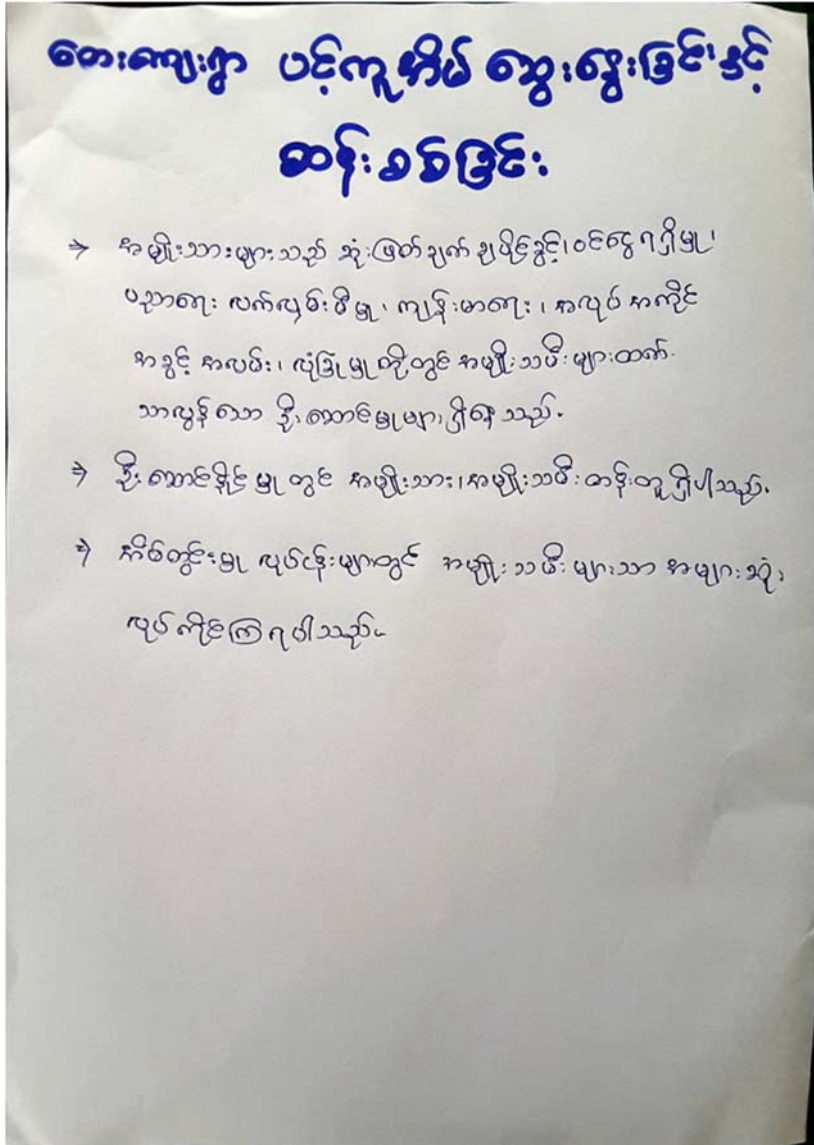 တေးကျေးရွာ ပင့်ကူအိမ် ဆွေးနွေးခြင်းနှင့်
ဆန်းစစ်ခြင်း
⇒ အမျိုးသားများသည် ဆုံးဖြတ်ချက်ချပိုင်ခွင့်၊ ဝင်ငွေရရှိမှု၊
ပညာရေး လက်လှမ်းမီမှု၊ ကျန်းမာရေး၊ အလုပ်အကိုင်
အခွင့်အလမ်း၊ လုံခြုံမှုတို့တွင် အမျိုးသမီးများထက်
သာလွန်သော ဦးဆောင်မှုများရှိနေသည်။
⇒ ဦးဆောင်နိုင်မှုတွင် အမျိုးသား၊ အမျိုးသမီး တန်းတူရှိပါသည်။
⇒ အိမ်တွင်းမှု လုပ်ငန်းများတွင် အမျိုးသမီးများသာ အများဆုံး
လုပ်ကိုင်ကြရပါသည်။